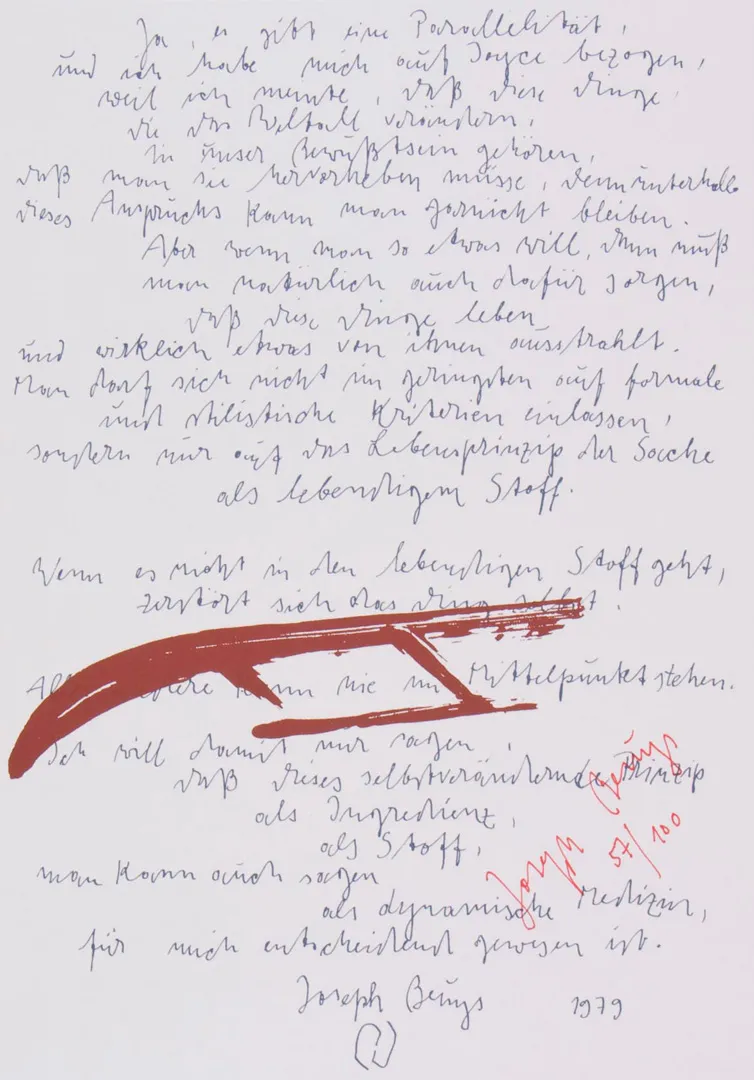 Ja, es gibt eine Parallelität,
und ich habe mich auf Joyce bezogen,
weil ich meinte, daß diese Dinge,
die das Weltall verändern,
in unser Bewußtsein gehören,
daß man sie hervorheben müsse, denn unterhalb
dieses Anspruchs kann man garnicht bleiben.
Aber wenn man so etwas will, dann muß
man natürlich auch dafür sorgen,
daß diese Dinge leben
und wirklich etwas von ihnen ausstrahlt.
Man darf sich nicht im geringsten auf formale
und stilistische Kriterien einlassen,
sondern nur auf das Lebensprinzip der Sache
als lebendigem Stoff.
Wenn es nicht in den lebendigen Stoff geht,
zerstört sich das Ding selbst.
kann nie im Mittelpunkt stehen.
Ich will damit nur sagen,
daß dieses selbstverändernde Prinzip
als Ingredienz,
als Stoff,
man kann auch sagen
als dynamische Medizin,
für mich entscheidend gewesen ist.
Joseph Beuys 1979
Joseph Beuys
57/100